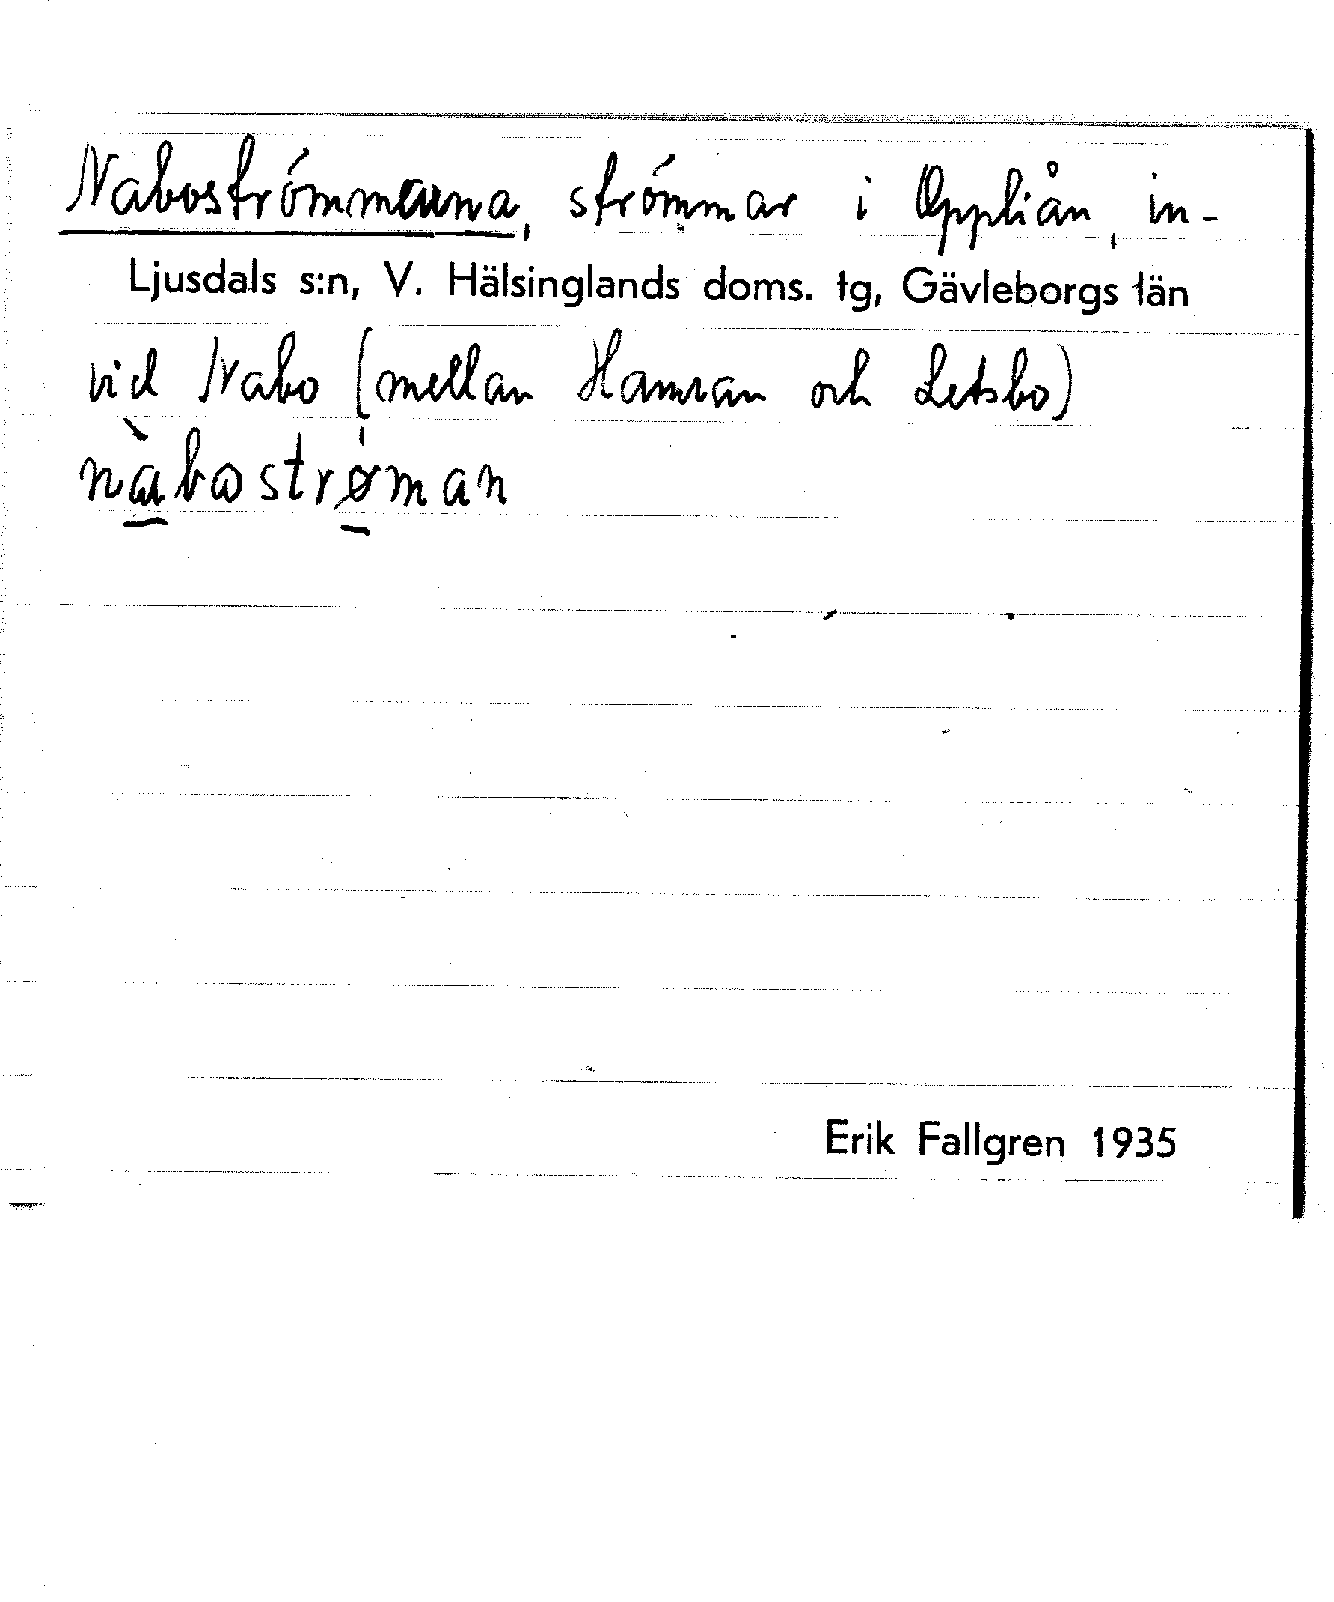 Naboströmmarna, strömmar i Oppliån, in-
Ljusdals s:n, V. Hälsinglands doms. tg, Gävleborgs län
vid Nabo (mellan Hamran och Letsbo)
nàbostrøman
Erik Fallgren 1935